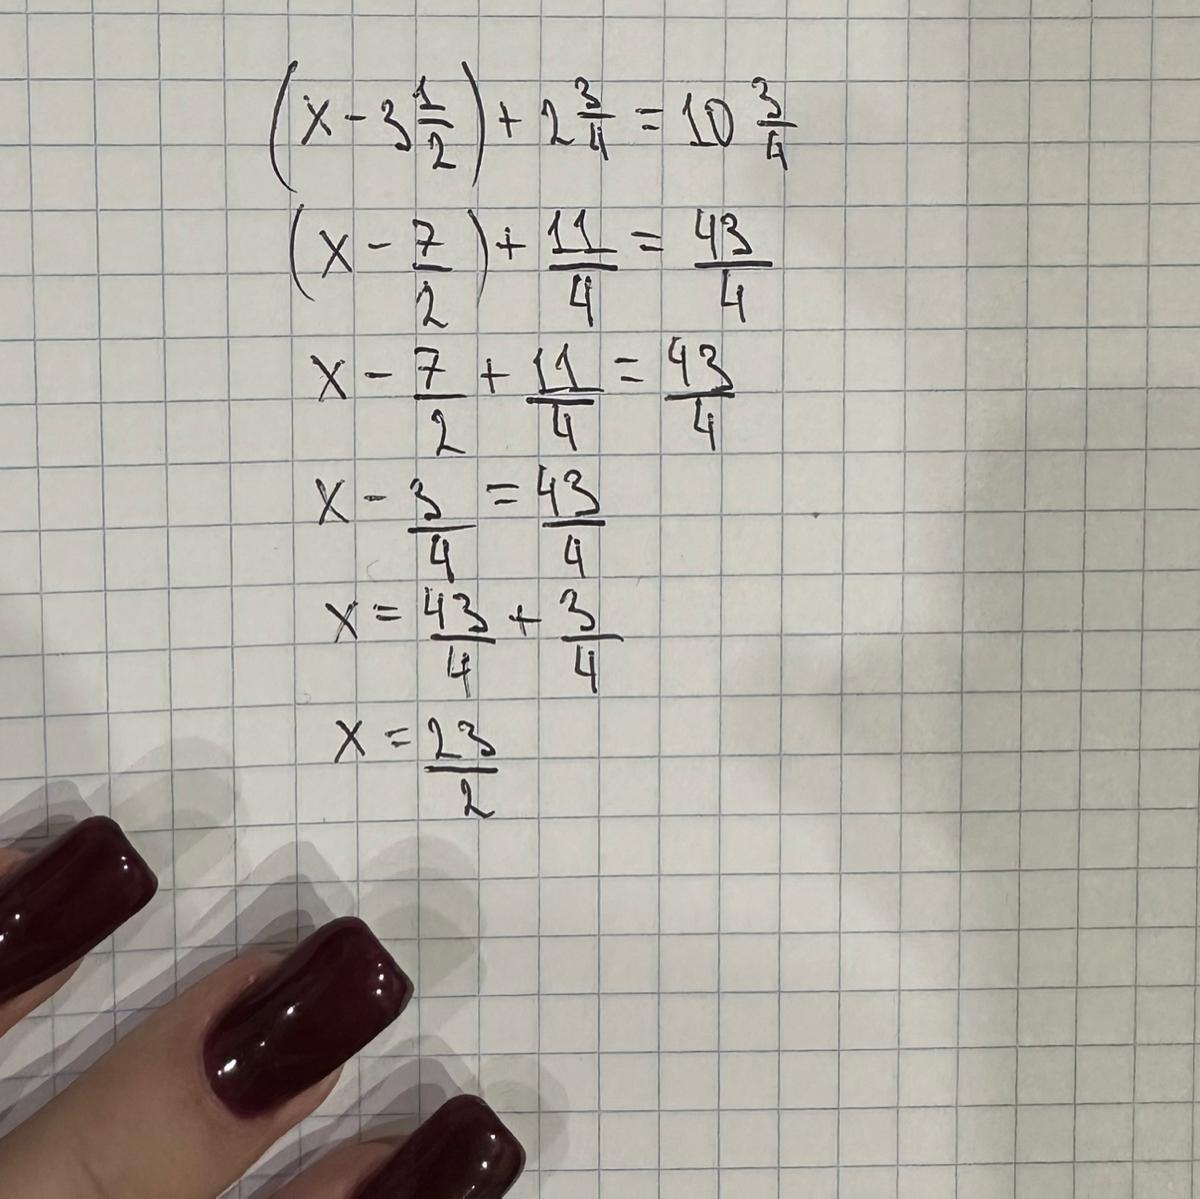 (x - 3 1/2) + 2 3/4 = 10 3/4
(x - 7/2) + 11/4 = 43/4
x - 7/2 + 11/4 = 43/4
x - 3/4 = 43/4
x = 43/4 + 3/4
x = 23/2